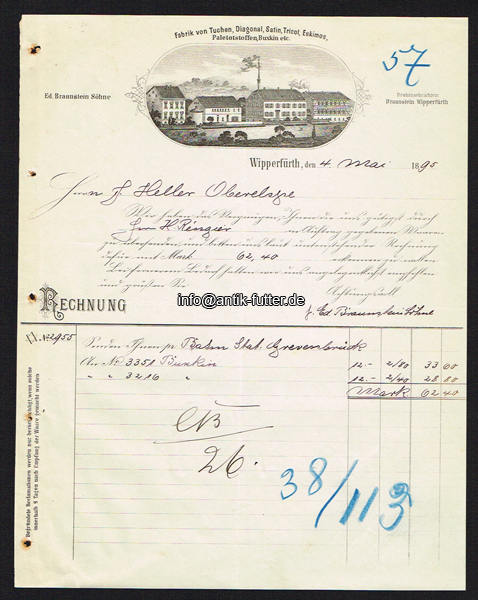 Fabrik von Tuchen, Diagonal, Satin, Tricot, Eskimos,
Paletotstoffen, Buxkin etc.
57
Ed. Braunstein Söhne
Braunstein Wipperfürth
Wipperfürth, den 4. Mai 1895
Herrn F. Heller Oberelspe
Wir haben das Vergnügen, Ihnen die uns gütigst durch
Herrn H. in Auftrag gegebenen Waaren
zu übersenden und bitten uns laut untenstehender Rechnung
dafür mit Mark 62,40 erkennen zu wollen
Hochachtungsvoll
p. Ed. Braunstein Söhne
info@antik-futter.de
RECHNUNG
No 2955
Senden Ihnen pr Bahn Stat. Grevenbrück
Nr 3351 Buxkin 12.- 2/80 33 60
" " 3216 " 12.- 2/40 28 80
Mark 62 40
26.
38/113
Begründete Reclamationen werden nur berücksichtigt, wenn solche
innerhalb 8 Tagen nach Empfang der Waare gemacht werden